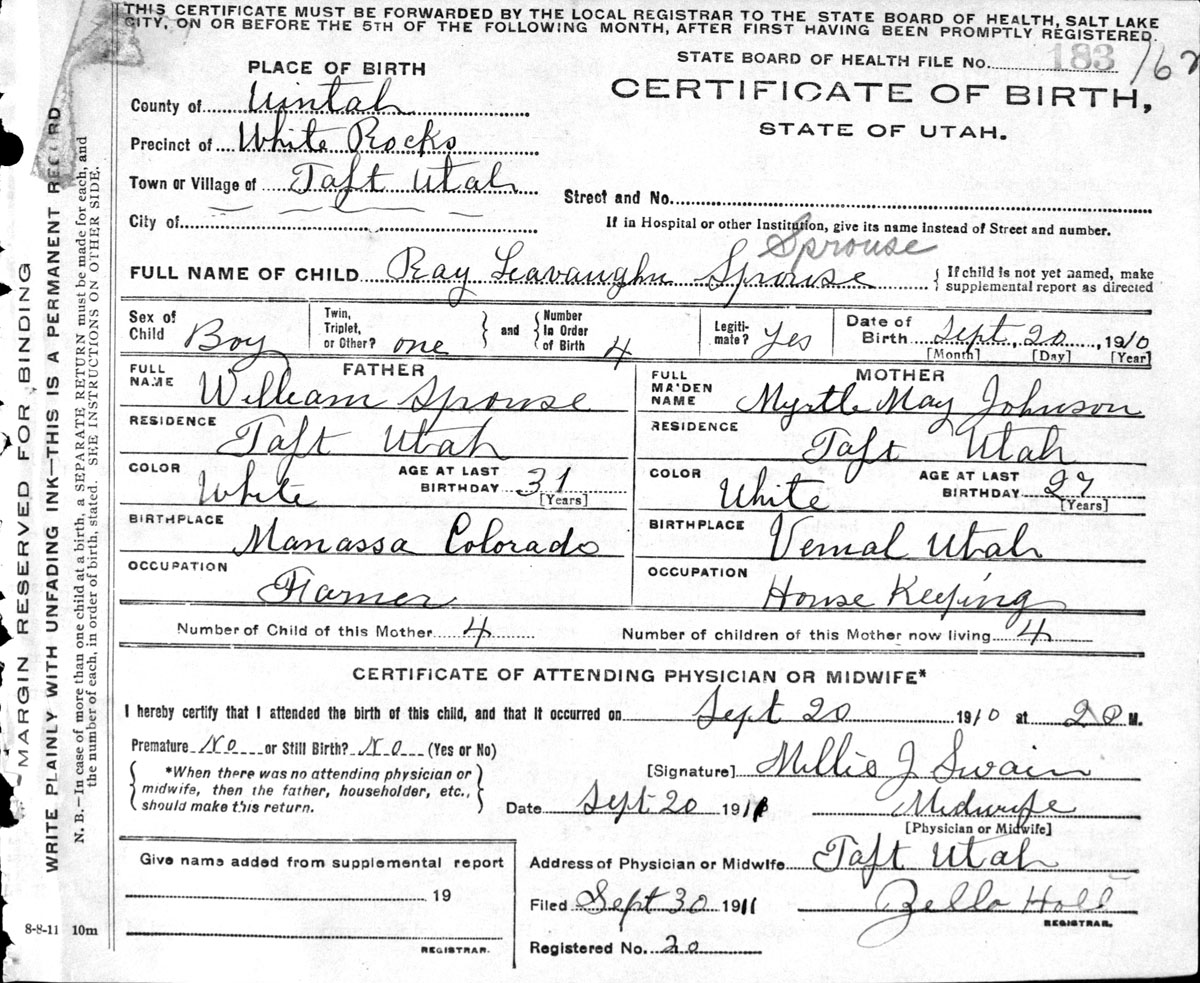 THIS CERTIFICATE MUST BE FORWARDED BY THE LOCAL REGISTRAR TO THE STATE BOARD OF HEALTH, SALT LAKE
CITY, ON OR BEFORE THE 5TH OF THE FOLLOWING MONTH, AFTER FIRST HAVING BEEN PROMPTLY REGISTERED.
STATE BOARD OF HEALTH FILE No. 183
CERTIFICATE OF BIRTH,
STATE OF UTAH.
PLACE OF BIRTH
County of Uintah
Precinct of White Rocks
Town or Village of Taft Utah
Street and No.
City of
If in Hospital or other Institution, give its name instead of Street and number.
Sprouse
FULL NAME OF CHILD Ray Leavaughn Sprouse
{ If child is not yet named, make
supplemental report as directed
Sex of Child Boy
Twin, Triplet, or Other? one } and { Number In Order of Birth 4
Legiti-mate? Yes
Date of Birth Sept, 20, 1910
[Month] [Day] [Year]
FATHER
FULL NAME William Sprouse
RESIDENCE Taft Utah
COLOR White AGE AT LAST BIRTHDAY 31 [Years]
BIRTHPLACE Manassa Colorado
OCCUPATION Farmer
MOTHER
FULL MAIDEN NAME Myrtle May Johnson
RESIDENCE Taft Utah
COLOR White AGE AT LAST BIRTHDAY 27 [Years]
BIRTHPLACE Vernal Utah
OCCUPATION House Keeping
Number of Child of this Mother 4 Number of children of this Mother now living 4
CERTIFICATE OF ATTENDING PHYSICIAN OR MIDWIFE*
I hereby certify that I attended the birth of this child, and that it occurred on Sept 20 1910 at 2 P M.
Premature No or Still Birth? No (Yes or No)
{ *When there was no attending physician or
midwife, then the father, householder, etc.,
should make this return. }
[Signature] Millie J Swain
Date Sept 20 191 Midwife
[Physician or Midwife]
Give name added from supplemental report
19
REGISTRAR.
Address of Physician or Midwife Taft Utah
Filed Sept 30 1911 Zella Hall
REGISTRAR.
Registered No. 20
8-8-11 10m
MARGIN RESERVED FOR BINDING
WRITE PLAINLY WITH UNFADING INK—THIS IS A PERMANENT RECORD
N. B.—In case of more than one child at a birth, a SEPARATE RETURN must be made for each, and
the number of each, in order of birth, stated. SEE INSTRUCTIONS ON OTHER SIDE.